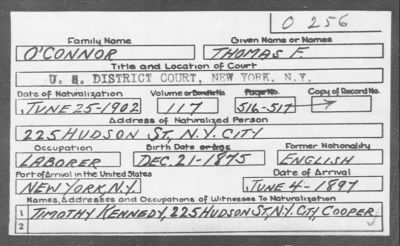 O 256
Family Name Given Name or Names
O'CONNOR THOMAS F.
Title and Location of Court
U. S. DISTRICT COURT, NEW YORK. N.Y.
Date of Naturalization Volume or Bundle No. Page No. Copy of Record No.
JUNE 25-1902 117 516-517
Address of Naturalized Person
225 HUDSON ST, N.Y. CITY
Occupation Birth Date or Age Former Nationality
LABORER DEC. 21-1875 ENGLISH
Port of Arrival in the United States Date of Arrival
NEW YORK, N.Y. JUNE 4-1897
Names, Addresses and Occupations of Witnesses To Naturalization
1 TIMOTHY KENNEDY, 225 HUDSON ST, N.Y. CITY, COOPER
2